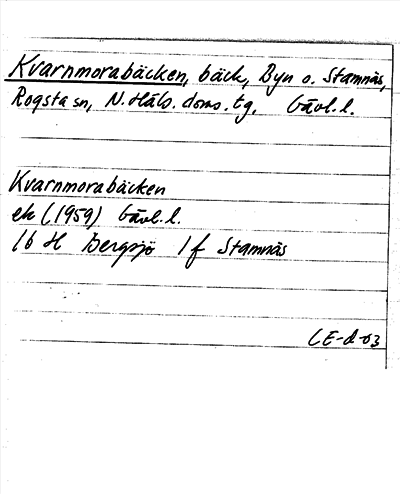 Kvarnmorabäcken, bäck, Byn o. Stamnäs,
Rogsta sn, N. Häls. doms. tg. Gävl. l.
Kvarnmorabäcken
ek (1959) Gävl. l.
16 H Bergsjö 1 f Stamnäs
LE-d-03